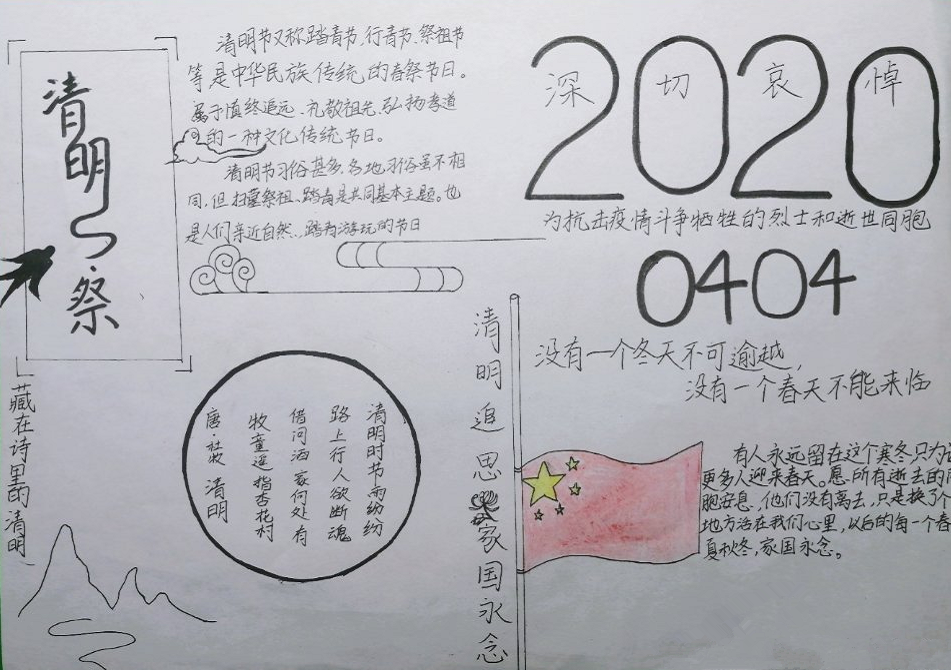 清明祭
清明节又称踏青节,行青节、祭祖节
等是中华民族传统的春祭节日。
属于慎终追远、礼敬祖先、弘扬孝道
的一种文化传统节日。
清明节习俗甚多,各地习俗虽不相
同,但扫墓祭祖、踏青是共同基本主题。也
是人们亲近自然、踏青游玩的节日
2020
深切哀悼
为抗击疫情斗争牺牲的烈士和逝世同胞
0404
没有一个冬天不可逾越,
没有一个春天不能来临
藏在诗里的清明
清明时节雨纷纷
路上行人欲断魂
借问酒家何处有
牧童遥指杏花村
唐·杜牧 清明
清明追思家国永念
有人永远留在这个寒冬只为
更多人迎来春天。愿所有逝去的
胞安息,他们没有离去,只是换了
地方活在我们心里,以后的每一个春
夏秋冬,家国永念。